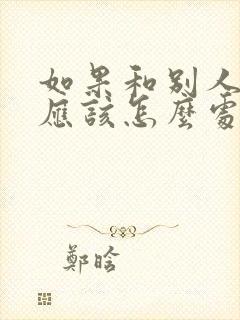 如果和別人
應該怎麼處
鄭晗